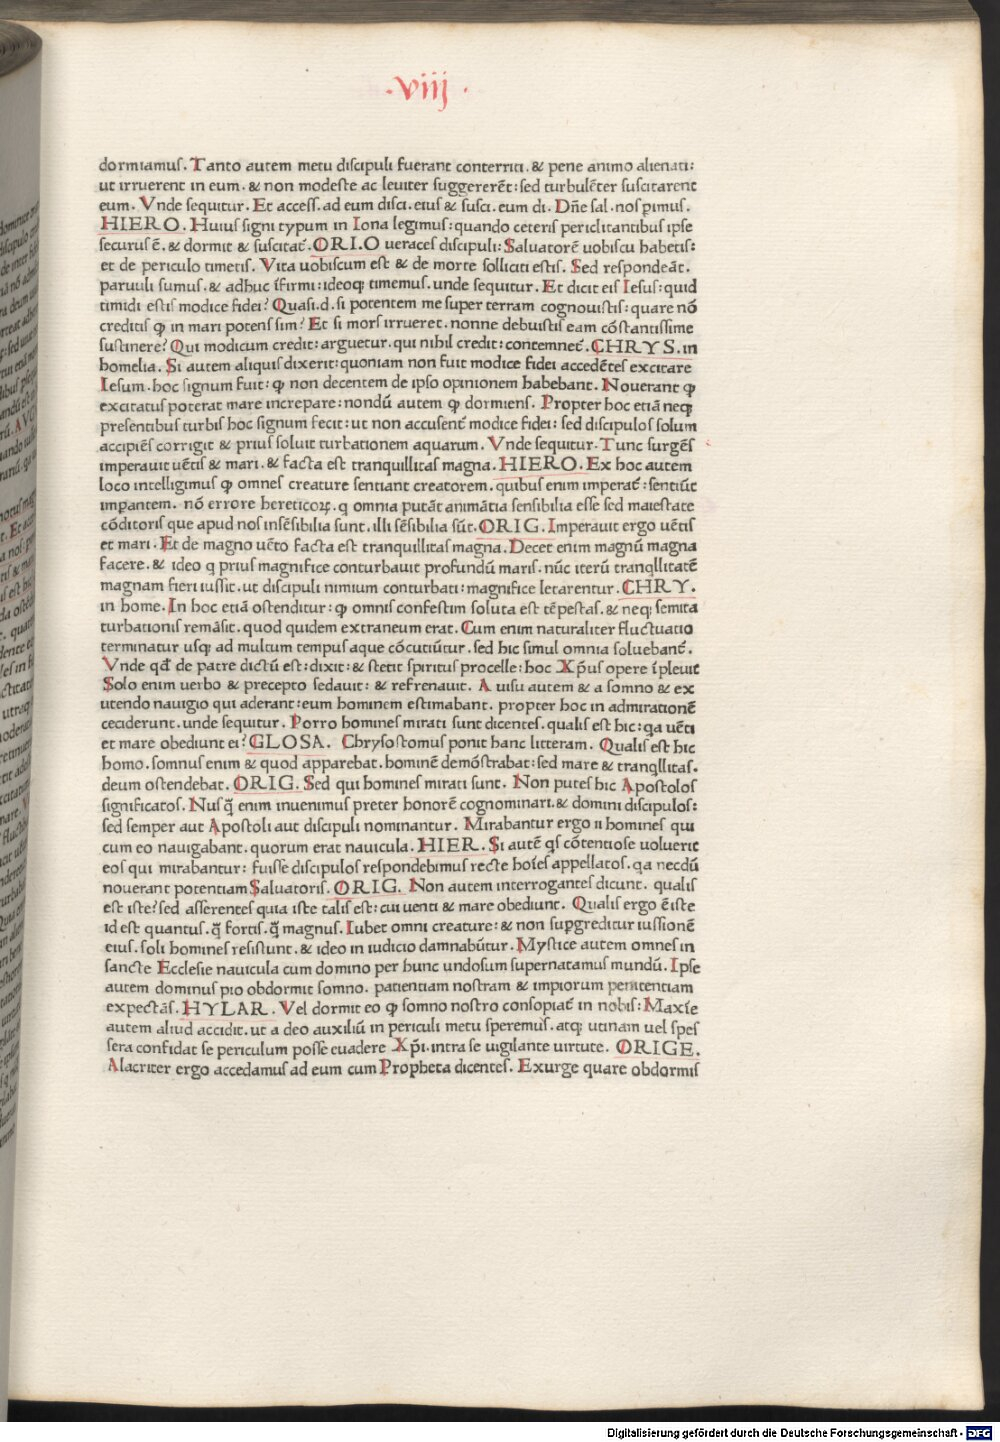 ·viij·
dormiamuſ. Tanto autem metu diſcipuli fuerant conterriti. & pene animo alienati:
ut irruerent in eum. & non modeſte ac leuiter ſuggererēt: ſed turbulēter ſuſcitarent
eum. Vnde ſequitur. Et acceſſ. ad eum diſci. eiuſ & ſuſci. eum di. Dn̄e ſal. noſ pimuſ.
HIERO. Huiuſ ſigni typum in Iona legimuſ: quando ceteriſ periclitantibuſ ipſe
ſecuruſ ē. & dormit & ſuſcitat̄. ORI. O ueraceſ diſcipuli: Saluatorē uobiſcū habetiſ:
et de periculo timetiſ. Vita uobiſcum eſt & de morte ſolliciti eſtiſ. Sed reſpondeāt.
paruuli ſumuſ. & adhuc īfirmi: ideoq; timemuſ. unde ſequitur. Et dicit eiſ Ieſuſ: quid
timidi eſtiſ modice fidei? Quaſi. d. ſi potentem me ſuper terram cognouiſtiſ: quare nō
creditiſ ꝙ in mari potenſ ſim? Et ſi morſ irrueret. nonne debuiſtiſ eam cōſtantiſſime
ſuſtinere? Qui modicum credit: arguetur. qui nihil credit: contemnet̄. CHRYS. in
homelia. Si autem aliquiſ dixerit: quoniam non fuit modice fidei accedēteſ excitare
Ieſum. hoc ſignum fuit: ꝙ non decentem de ipſo opinionem habebant. Nouerant ꝙ
excitatuſ poterat mare increpare: nondū autem ꝙ dormienſ. Propter hoc etiā neq;
preſentibuſ turbiſ hoc ſignum fecit: ut non accuſent̄ modice fidei: ſed diſcipuloſ ſolum
accipiēſ corrigit & priuſ ſoluit turbationem aquarum. Vnde ſequitur. Tunc ſurgēſ
imperauit uētiſ & mari. & facta eſt tranquillitaſ magna. HIERO. Ex hoc autem
loco intelligimuſ ꝙ omneſ creature ſentiant creatorem. quibuſ enim imperat̄: ſentiūt
impantem. nō errore hereticoꝝ. q omnia putāt animātia ſenſibilia eſſe ſed maieſtate
cōditoriſ que apud noſ inſēſibilia ſunt. illi ſēſibilia ſūt. ORIG. Imperauit ergo uētiſ
et mari. Et de magno uēto facta eſt tranquillitaſ magna. Decet enim magnū magna
facere. & ideo q priuſ magnifice conturbauit profundū mariſ. nūc iterū tranqllitatē
magnam fieri iuſſit. ut diſcipuli nimium conturbati: magnifice letarentur. CHRY.
in home. In hoc etiā oſtenditur: ꝙ omniſ confeſtim ſoluta eſt tēpeſtaſ. & neq; ſemita
turbationiſ remāſit. quod quidem extraneum erat. Cum enim naturaliter fluctuatio
terminatur uſq; ad multum tempuſ aque cōcutiūtur. ſed hic ſimul omnia ſoluebant̄.
Vnde qđ de patre dictū eſt: dixit: & ſtetit ſpirituſ procelle: hoc Xp̄uſ opere īpleuit
Solo enim uerbo & precepto ſedauit: & refrenauit. A uiſu autem & a ſomno & ex
utendo nauigio qui aderant: eum hominem eſtimabant. propter hoc in admirationē
ceciderunt. unde ſequitur. Porro homineſ mirati ſunt dicenteſ. qualiſ eſt hic: qa uēti
et mare obediunt ei? GLOSA. Chryſoſtomuſ ponit hanc litteram. Qualiſ eſt hic
homo. ſomnuſ enim & quod apparebat. hominē demōſtrabat: ſed mare & tranqllitaſ.
deum oſtendebat. ORIG. Sed qui homineſ mirati ſunt. Non puteſ hic Apoſtoloſ
ſignificatoſ. Nuſq̄ enim inuenimuſ preter honorē cognominari. & domini diſcipuloſ:
ſed ſemper aut Apoſtoli aut diſcipuli nominantur. Mirabantur ergo ii homineſ qui
cum eo nauigabant. quorum erat nauicula. HIER. Si autē qſ cōtentioſe uoluerit
eoſ qui mirabantur: fuiſſe diſcipuloſ reſpondebimuſ recte hoīeſ appellatoſ. qa necdū
nouerant potentiam Saluatoriſ. ORIG. Non autem interroganteſ dicunt. qualiſ
eſt iſte? ſed aſſerenteſ quia iſte taliſ eſt: cui uenti & mare obediunt. Qualiſ ergo ē iſte
id eſt quantuſ. q̄ fortiſ. q̄ magnuſ. Iubet omni creature: & non ſupgreditur iuſſionē
eiuſ. ſoli homineſ reſiſtunt. & ideo in iudicio damnabūtur. Myſtice autem omneſ in
ſancte Eccleſie nauicula cum domino per hunc undoſum ſupernatamuſ mundū. Ipſe
autem dominuſ pio obdormit ſomno. patientiam noſtram & impiorum penitentiam
expectāſ. HYLAR. Vel dormit eo ꝙ ſomno noſtro conſopiat̄ in nobiſ: Maxīe
autem aliud accidit. ut a deo auxiliū in periculi metu ſperemuſ. atq; utinam uel ſpeſ
ſera confidat ſe periculum poſſe euadere Xp̄i. intra ſe uigilante uirtute. ORIGE.
Alacriter ergo accedamuſ ad eum cum Propheta dicenteſ. Exurge quare obdormiſ
Digitalisierung gefördert durch die Deutsche Forschungsgemeinschaft - DFG